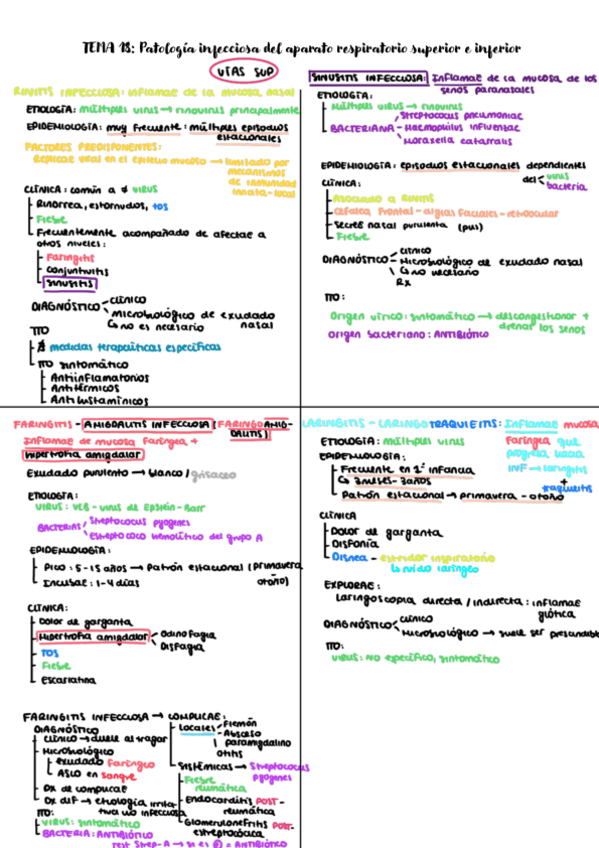 TEMA 18: Patología infecciosa del aparato respiratorio superior e inferior
VÍAS SUP
RINITIS INFECCIOSA: Inflamac de la mucosa nasal
ETIOLOGÍA: múltiples virus → rinovirus principalmente
EPIDEMIOLOGÍA: muy frecuente: múltiples episodios
estacionales
FACTORES PREDISPONENTES:
Replicac viral en el epitelio mucoso → limitado por
mecanismos
de inmunidad
innata-local
CLÍNICA: común a ≠ VIRUS
Rinorrea, estornudos, tos
Fiebre
Frecuentemente acompañado de afectac a
otros niveles:
Faringitis
Conjuntivitis
SINUSITIS
DIAGNÓSTICO
clínico
microbiológico de exudado
nasal
↳ no es necesario
TTO
∄ medidas terapeúticas específicas
TTO sintomático
Antiinflamatorios
Antitérmicos
Antihistamínicos
SINUSITIS INFECCIOSA: Inflamac de la mucosa de los
senos paranasales
ETIOLOGÍA:
Múltiples virus → rinovirus
BACTERIANA
Streptococus pneumoniae
Haemophilus influenzae
Moraxella catarralis
EPIDEMIOLOGÍA: episodios estacionales dependientes
del
virus
bacteria
CLÍNICA:
Asociado a RINITIS
Cefalea frontal-algias faciales-retroocular
Secrec nasal purulenta (pus)
Fiebre
DIAGNÓSTICO
clínico
Microbiológico de exudado nasal
↳ no necesario
Rx
TTO:
Origen vírico: sintomático → descongestionar +
drenar los senos
Origen bacteriano: ANTIBIÓTICO
FARINGITIS - AMIGDALITIS INFECCIOSA (FARINGOAMIG-
DALITIS)
Inflamac de mucosa faríngea +
hipertrofia amigdalar
Exudado purulento → blanco / grisáceo
ETIOLOGÍA:
VIRUS: VEB - virus de Epstein-Barr
BACTERIAS
Streptococus pyogenes
Estreptococo hemolítico del grupo A
EPIDEMIOLOGÍA:
Pico: 5-15 años → Patrón estacional (primavera
-
otoño)
Incubac: 1-4 días
CLÍNICA:
Dolor de garganta
Hipertrofia amigdalar
Odinofagia
Disfagia
TOS
Fiebre
Escarlatina
FARINGITIS INFECCIOSA → COMPLICAC:
DIAGNÓSTICO
Clínico → duele al tragar
Microbiológico
exudado faríngeo
ASLO en sangre
Dx de complicac
Dx dif → etiología irrita-
tiva u no infecciosa
TTO:
VIRUS: sintomático
BACTERIA: ANTIBIÓTICO
Test Strep-A → si es ⊕ = ANTIBIÓTICO
Locales
Flemón
Absceso
paramigdalino
otitis
Sistémicas → Streptococus
pyogenes
Fiebre
reumática
Endocarditis POST-
reumática
Glomerulonefritis POST-
estreptocócica
LARINGITIS - LARINGOTRAQUEITIS: Inflamac mucosa
faríngea que
progresa hacia
INF → laringitis
+
traqueitis
ETIOLOGÍA: múltiples virus
EPIDEMIOLOGÍA:
Frecuente en 1ª infancia
↳ 3 meses-3 años
Patrón estacional → primavera - otoño
CLÍNICA
Dolor de garganta
Disfonía
Disnea - estridor inspiratorio
↳ ruido laríngeo
EXPLORAC:
Laringoscopia directa / indirecta: inflamac
glótica
DIAGNÓSTICO
clínico
Microbiológico → suele ser prescindible
TTO:
VIRUS: NO específico, sintomático